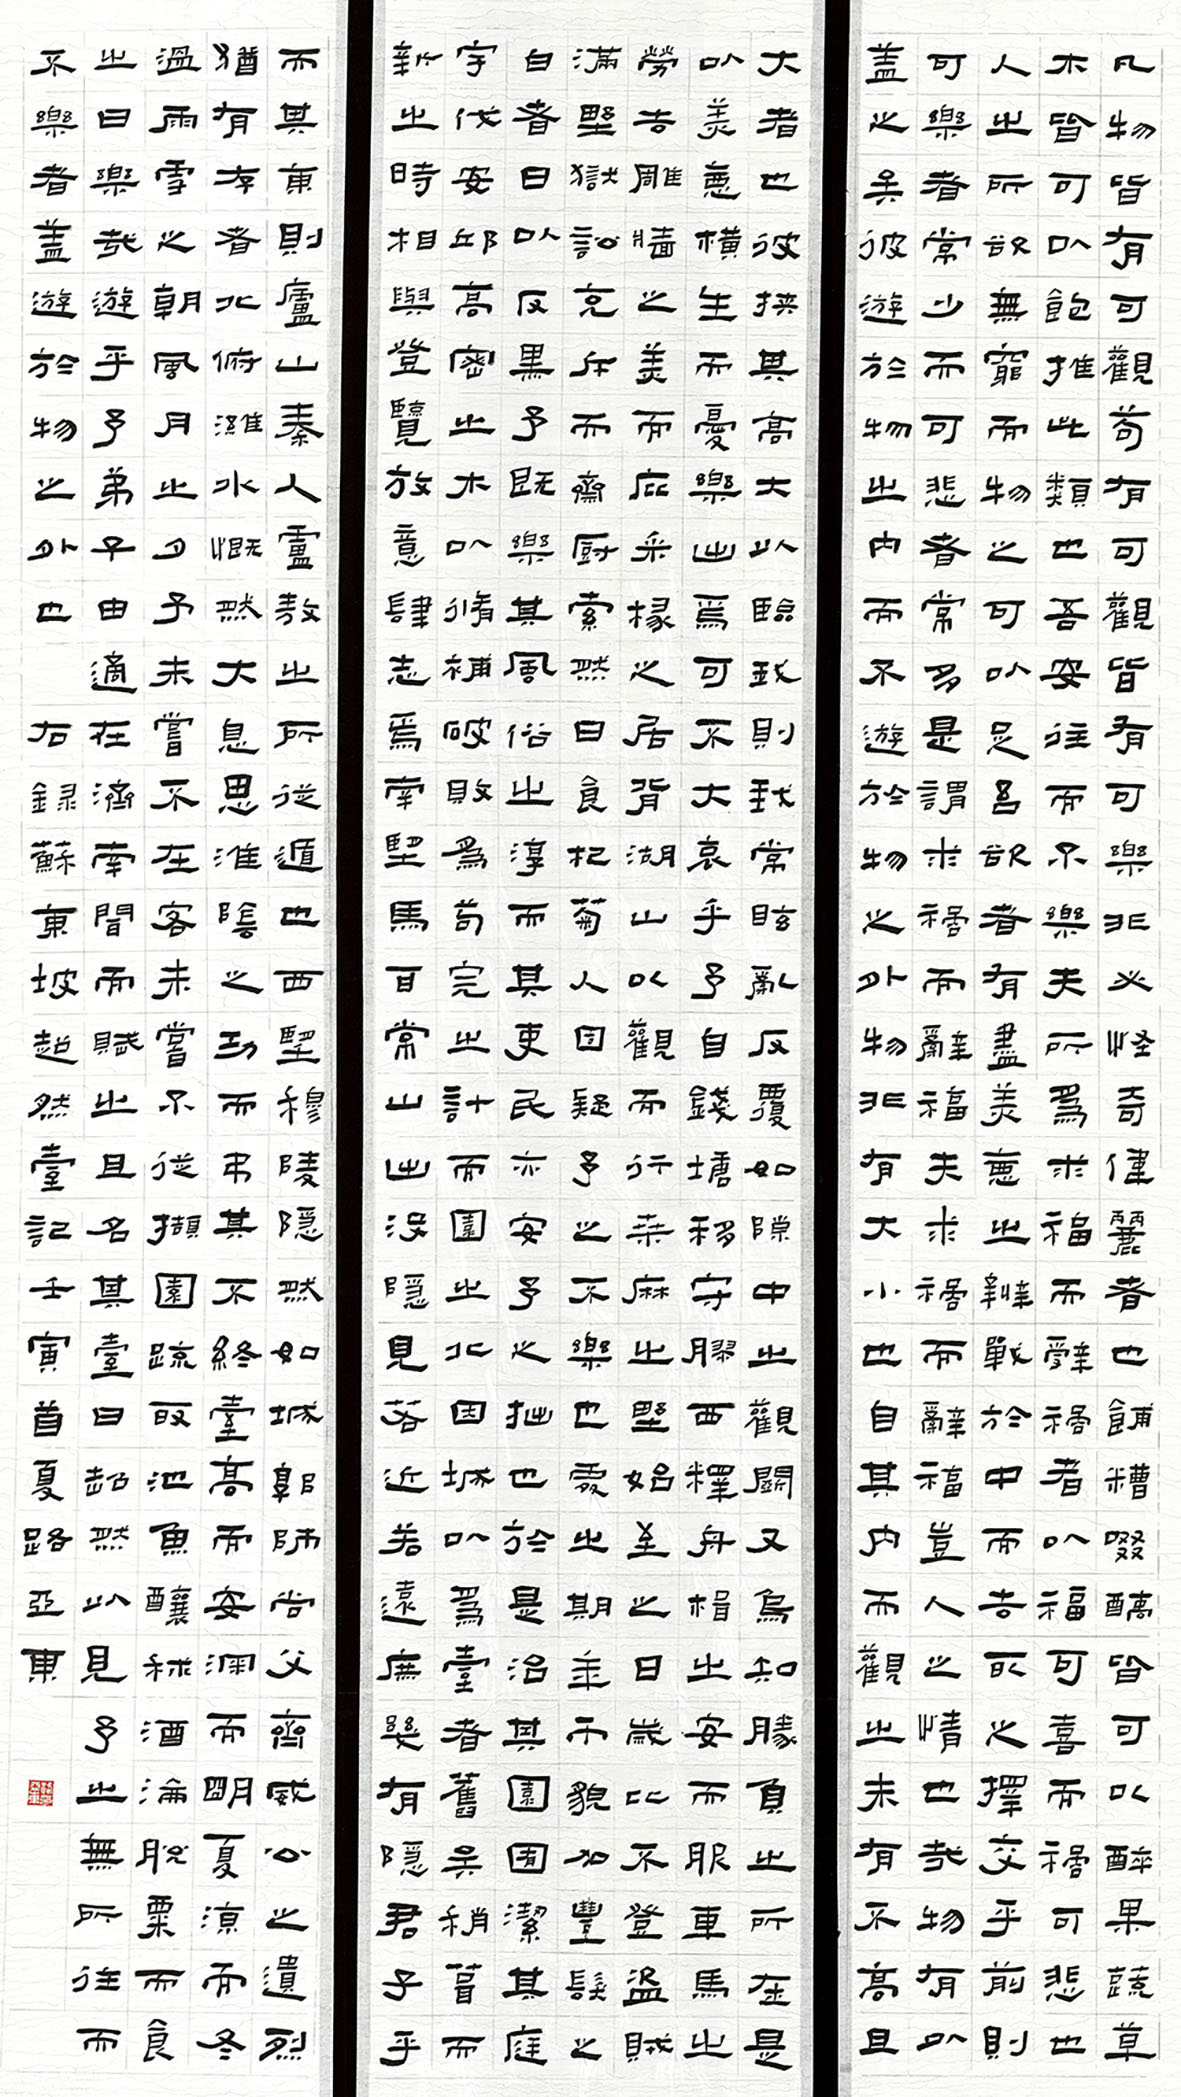 凡物皆有可觀苟有可觀皆有可樂非必怪奇偉麗者也餔糟啜醨皆可以醉果蔬草
木皆可以飽推此類也吾安往而不樂夫所爲求福而辭禍者以福可喜而禍可悲也
人之所欲無窮而物之可以足吾欲者有盡美惡之辨戰於中而去取之擇交乎前則
可樂者常少而可悲者常多是謂求禍而辭福夫求禍而辭福豈人之情也哉物有以
蓋之矣彼遊於物之內而不遊於物之外物非有大小也自其內而觀之未有不高且
大者也彼挾其高大以臨我則我常眩亂反覆如隙中之觀鬭又烏知勝負之所在是
以美惡橫生而憂樂出焉可不大哀乎予自錢塘移守膠西釋舟楫之安而服車馬之
勞去雕牆之美而庇采椽之居背湖山以觀而行桑麻之野始至之日歲比不登盜賊
滿野獄訟充斥而齋廚索然日食杞菊人固疑予之不樂也處之期年而貌加豐髮之
白者日以反黑予既樂其風俗之淳而其吏民亦安予之拙也於是治其園囿潔其庭
宇伐安邱高密之木以脩補破敗爲苟完之計而園之北因城以爲臺者舊矣稍葺而
新之時相與登覽放意肆志焉南望馬耳常山出沒隱見若近若遠庶幾有隱君子乎
而其東則廬山秦人盧敖之所從遁也西望穆陵隱然如城郭師尚父齊威公之遺烈
猶有存者北俯濰水慨然大息思淮陰之功而弔其不終臺高而安深而明夏涼而冬
溫雨雪之朝風月之夕予未嘗不在客未嘗不從擷園蔬取池魚釀秫酒瀹脫粟而食
之曰樂哉遊乎予弟子由適在濟南聞而賦之且名其臺曰超然以見予之無所往而
不樂者蓋遊於物之外也 右錄蘇東坡超然臺記壬寅首夏路亞東